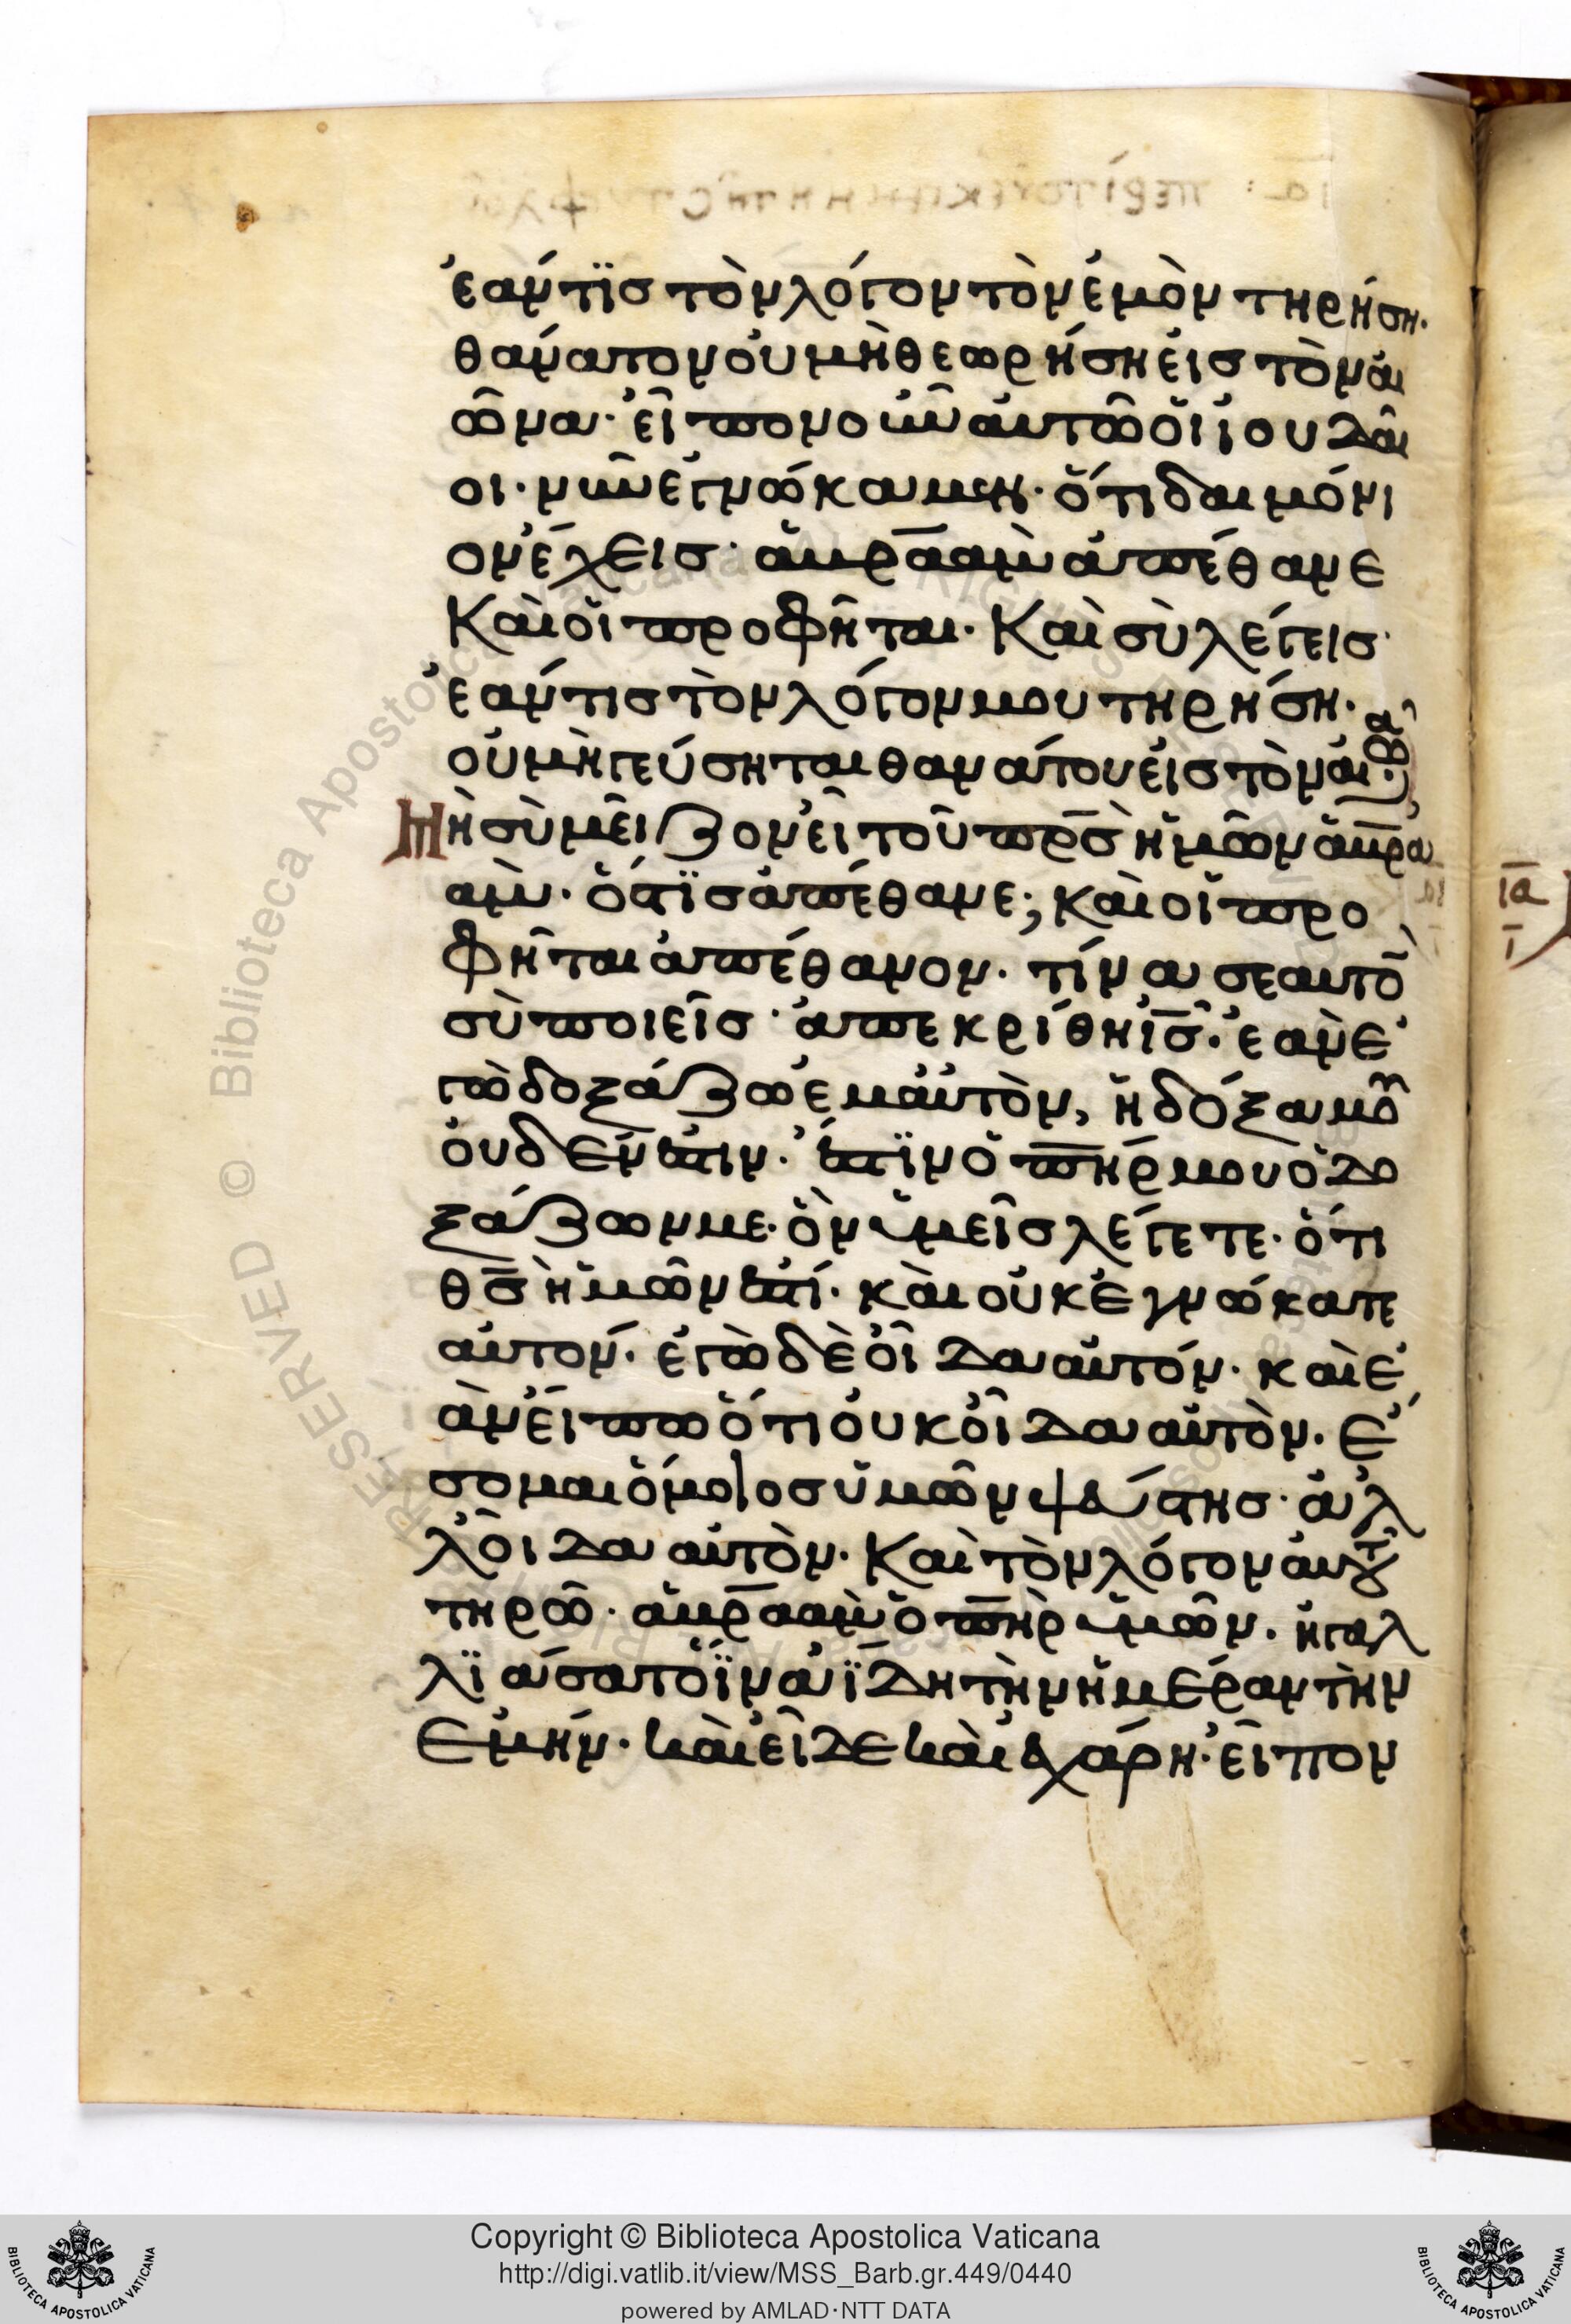 ἐάν τϊσ τὸν λόγον τὸν ἐμὸν τηρήση·
θάνατον οὐ μὴ θεωρήση εἰσ τὸν αι
ῶνα· εἶπον οὖν αυτῶ οἱ ϊουδαῖ
οι· νῦν ἐγνώκαμεν· ὅτι δαιμόνι
ον ἔχεισ· ἀβρααμ ἀπέθανε
Καὶ οἱ προφῆται· Καὶ σὺ λέγεισ·
ἐάν τισ τὸν λόγον μου τηρήση·
οὐ μὴ γεύσηται θανάτου εἰσ τὸν αἰ
Μὴ σὺ μεῖζον εἶ τοῦ πρ̅σ ἡμῶν ἀβρα
αμ· ὅστϊσ ἀπέθανε; καὶ οἱ προ
φῆται ἀπέθανον· τίνα σεαυτὸ
σὺ ποιεῖσ· ἀπεκρίθη ι̅σ̅· ἐὰν ἐ
γὼ δοξάζω ἐμαὐτὸν, ἡ δόξα μου
οὐδέν ἐστιν· ἔστϊν ὁ π̅η̅ρ μου ὁ δο
ξάζων με· ὃν ὑμεῖσ λέγετε· ὅτι
θ̅σ̅ ἡμῶν ἐστί· καὶ οὐκ ἐγνώκατε
αὐτόν· ἐγὼ δὲ οἶδα αὐτόν· καὶ ἐ
ὰν εἴπω ὅτι οὐκ οἶδα αὐτὸν· ἔ
σομαι ὅμοιοσ ὑμῶν ψεύστησ· ἀλ
λ οἶδα αὐτὸν· Καὶ τὸν λόγον αὐτοῦ
τηρῶ· ἀβρααμ ὁ π̅η̅ρ ὑμῶν· ηγαλ
λϊάσατο ἵνα ἴδη τὴν ἡμέραν τὴν
ἐμήν· καὶ εἶδε καὶ ἐχάρη· εἶπον
ια
ι
RESERVED © Biblioteca Apostolica Vaticana
Copyright © Biblioteca Apostolica Vaticana
http://digi.vatlib.it/view/MSS_Barb.gr.449/0440
powered by AMLAD·NTT DATA
BIBLIOTECA APOSTOLICA VATICANA
BIBLIOTECA APOSTOLICA VATICANA